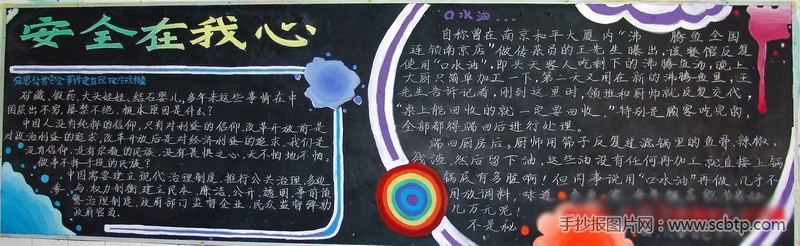 安全在我心
食品公共安全事件建立民主治理
矿藏、假药、大头娃娃、结石婴儿，多年来这些事情在中
国层出不穷，屡禁不绝，根本原因是什么？
中国人没有纯粹的信仰，只有对利益的信仰，改革开放前是
对政治利益的追求，改革开放后是对经济利益的追求，我们是
没有信仰，没有宗教的民族，没有畏惧之心，天不怕地不怕，
做事不择手段的民族？
中国需要建立现代治理制度，推行公共治理，多边
参与，权力制衡，建立民本、廉洁、公开、透明、事前预
警治理制度，政府部门监督企业，民众监督弹劾
政府官员。
口水油…
自称曾在南京和平大厦内“沸腾鱼全国
连锁南京店”做传菜员的王先生曝出，该餐馆反复
使用“口水油”，即头天客人吃剩下的沸腾鱼汤，晚上
大厨只简单加工一下，第二天又用在新的沸腾鱼里，王
先生告诉记者，刚到这里时，领班和厨师就反复交代，
“桌上能回收的就一定要回收。”特别是顾客吃完的，
全部都得端回后进行处理。
端回厨房后，厨师用筛子反复过滤锅里的鱼骨、辣椒、
残渣，然后留下油，这些油没有任何再加工就直接上锅
锅底有多脏啊！但同事说用“口水油”再做，几乎不
用放调料，味道
几万元呢！
不是秘
手抄报图片网：www.scbtp.com